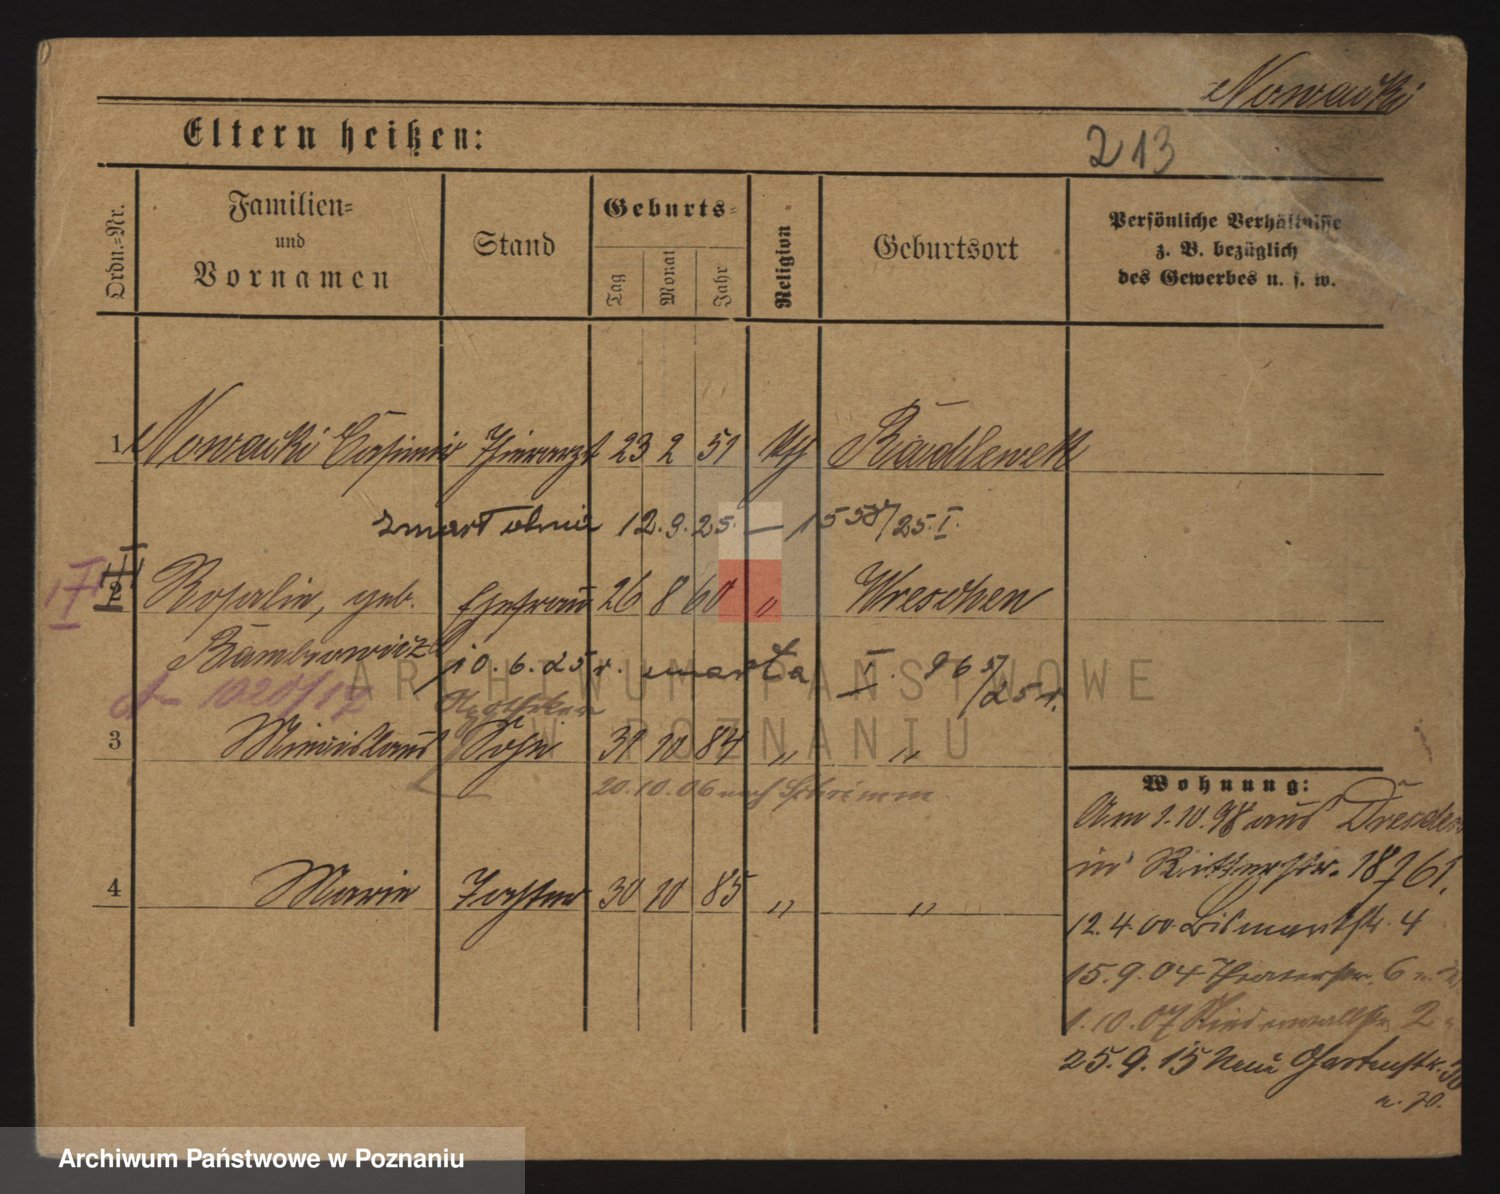 Nowacki
Eltern heißen:
213
Ordn.-Nr.
Familien-
und
Vornamen
Stand
Geburts-
Tag
Monat
Jahr
Religion
Geburtsort
Persönliche Verhältnisse
z. B. bezüglich
des Gewerbes u. s. w.
1 Nowacki Casimir Thierarzt 23 2 51
zmarł dnia 12.9.25. — 1558/25.I.
2 Rosalie, geb. Ehefrau 26 8 60 " Wreschen
10.6.25 r. umarła I. 965/25 r.
1020/17
Apotheker
3 Miecislaus Sohn 31 10 84 " "
20.10.06 nach Schrimm
4 Marie Tochter 30 10 85 " "
Wohnung:
Am 1.10.98 aus Dresden
in Ritterstr. 18
12.4.00 Bismarckstr. 4
15.9.04 Theaterstr. 6
1.10.07 Niederwallstr. 2
25.9.15 Neue Gartenstr.
ARCHIWUM PAŃSTWOWE
W POZNANIU
Archiwum Państwowe w Poznaniu